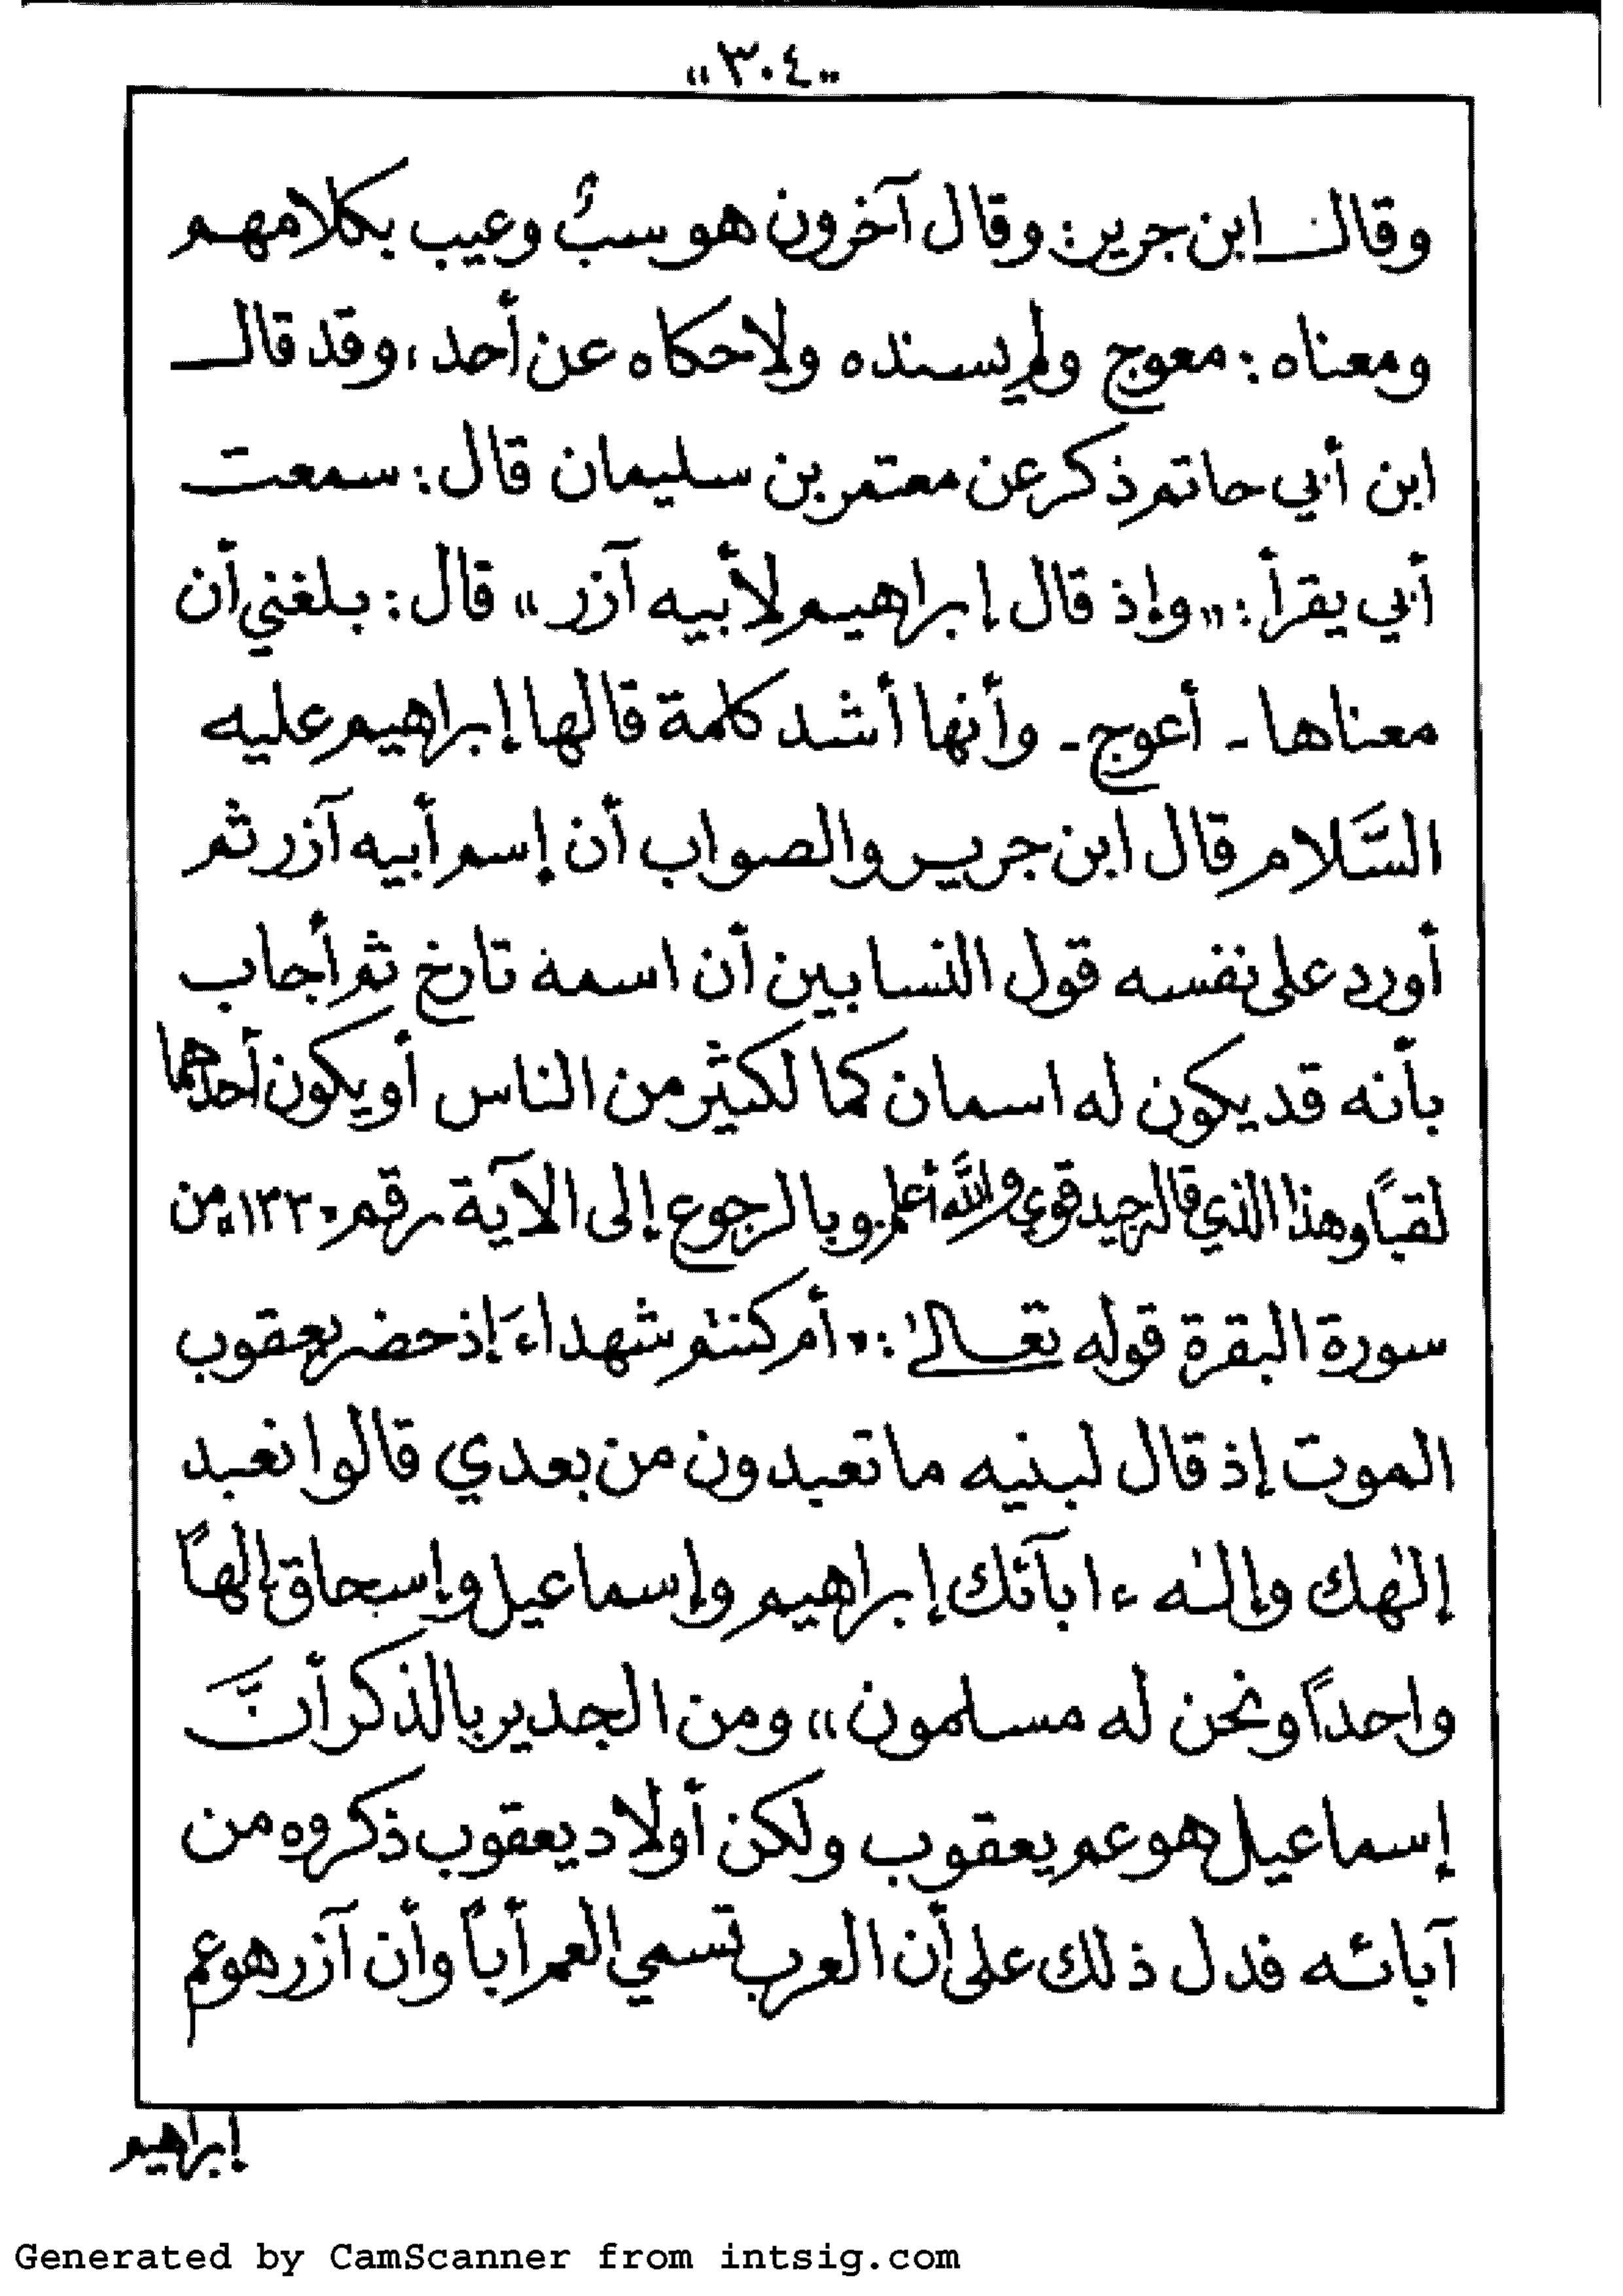 "٣٠٤"
وقال ابن جرير: وقال آخرون هو سبٌ وعيب بكلامهم
ومعناه: معوج ولم يسنده ولا حكاه عن أحد، وقد قال
ابن أبي حاتم ذكر عن معتمر بن سليمان قال: سمعت
أبي يقرأ: "وإذ قال إبراهيم لأبيه آزر" قال: بلغني أن
معناها - أعوج - وأنها أشد كلمة قالها إبراهيم عليه
السَّلام قال ابن جرير والصواب أن إسم أبيه آزر ثم
أورد على نفسه قول النسابين أن اسمه تارخ ثم أجاب
بأنه قد يكون له اسمان كما لكثير من الناس أو يكون أحدهما
لقباً وهذا الذي قاله جيد قوي والله أعلم. وبالرجوع إلى الآية رقم "١٣٣" من
سورة البقرة قوله تعالىٰ: "أم كنتم شهداءَ إذ حضر يعقوب
الموت إذ قال لبنيه ما تعبدون من بعدي قالوا نعبد
إلٰهك وإلٰه ءابآئك إبراهيم وإسماعيل وإسحاق إلٰهاً
واحداً ونحن له مسلمون" ومن الجدير بالذكر أنَّ
إسماعيل هو عم يعقوب ولكن أولاد يعقوب ذكروه من
آبائه فدل ذلك على أن العرب تسمي العم أباً وأن آزر هو عم
إبراهيم
Generated by CamScanner from intsig.com